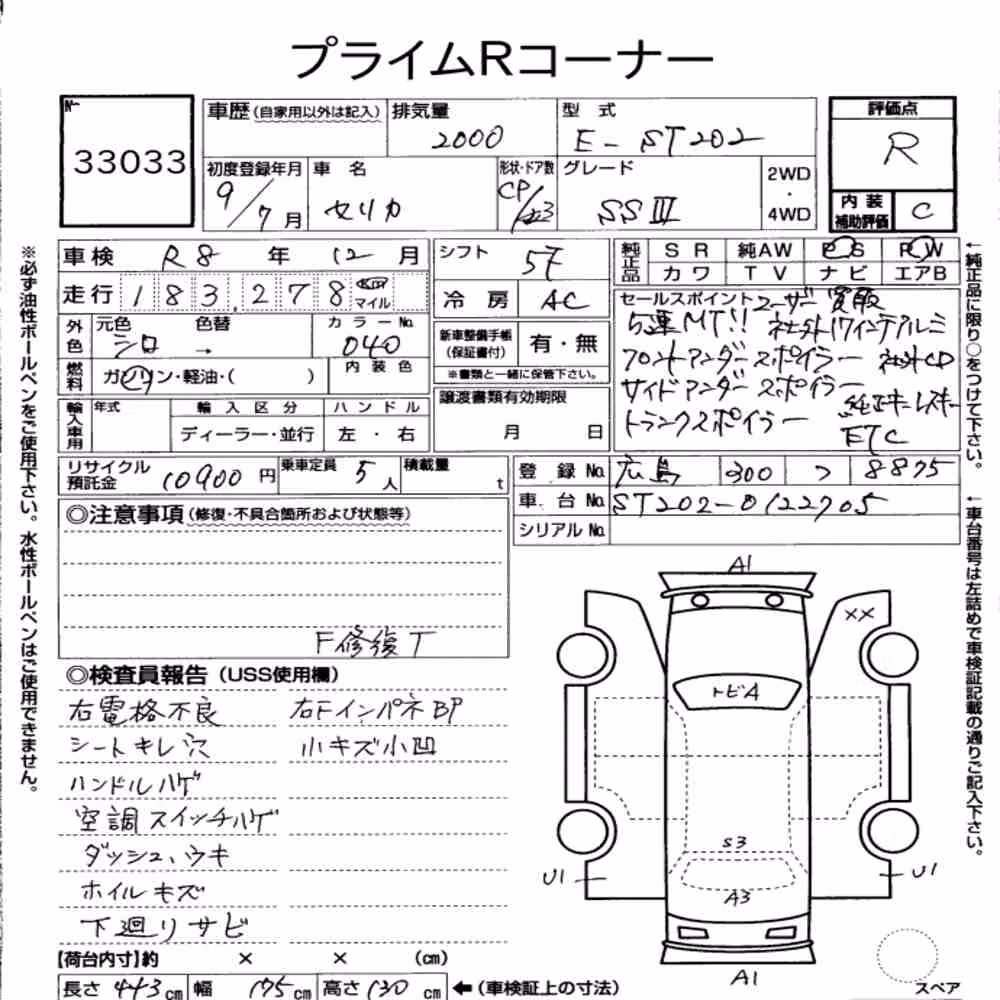 プライムRコーナー
No. 33033
車歴(自家用以外は記入) 排気量 2000 型式 E-ST202 評価点 R
初度登録年月 9/7月 車名 セリカ 形状・ドア数 CP/3 グレード SSIII 2WD・4WD 内装補助評価 C
車検 R8年12月 シフト 5F 純正品 SR 純AW PS PW
カワ TV ナビ エアB
走行 183,278 Km マイル 冷房 AC
セールスポイント ユーザー買取
5速MT!! 社外17インチアルミ
フロントアンダースポイラー 社外CD
サイドアンダースポイラー 純正キーレスキー
トランクスポイラー ETC
外色 元色 シロ 色替 → カラーNo. 040 新車整備手帳(保証書付) 有・無
燃料 ガソリン・軽油・( ) 内装色 ※書類と一緒に保管下さい。
輸入車用 年式 輸入区分 ハンドル 譲渡書類有効期限
ディーラー・並行 左・右 月 日
リサイクル預託金 10900円 乗車定員 5人 積載量 t 登録No. 広島 300 つ 8875
車台No. ST202-0122705
シリアルNo.
◎注意事項(修復・不具合箇所および状態等)
F修復T
◎検査員報告(USS使用欄)
右電格不良 右FインパネBP
シートキレ穴 小キズ小凹
ハンドルハゲ
空調スイッチハゲ
ダッシュ、ウキ
ホイルキズ
下廻りサビ
【荷台内寸】約 × × (cm)
長さ 443cm 幅 175cm 高さ 130cm ←(車検証上の寸法)
A1
XX
トビA
S3
U1 U1
A3
A1
スペア
※必ず油性ボールペンをご使用下さい。水性ボールペンはご使用できません。
←純正品に限り○をつけて下さい。
←車台番号は左詰めで車検証記載の通りご記入下さい。